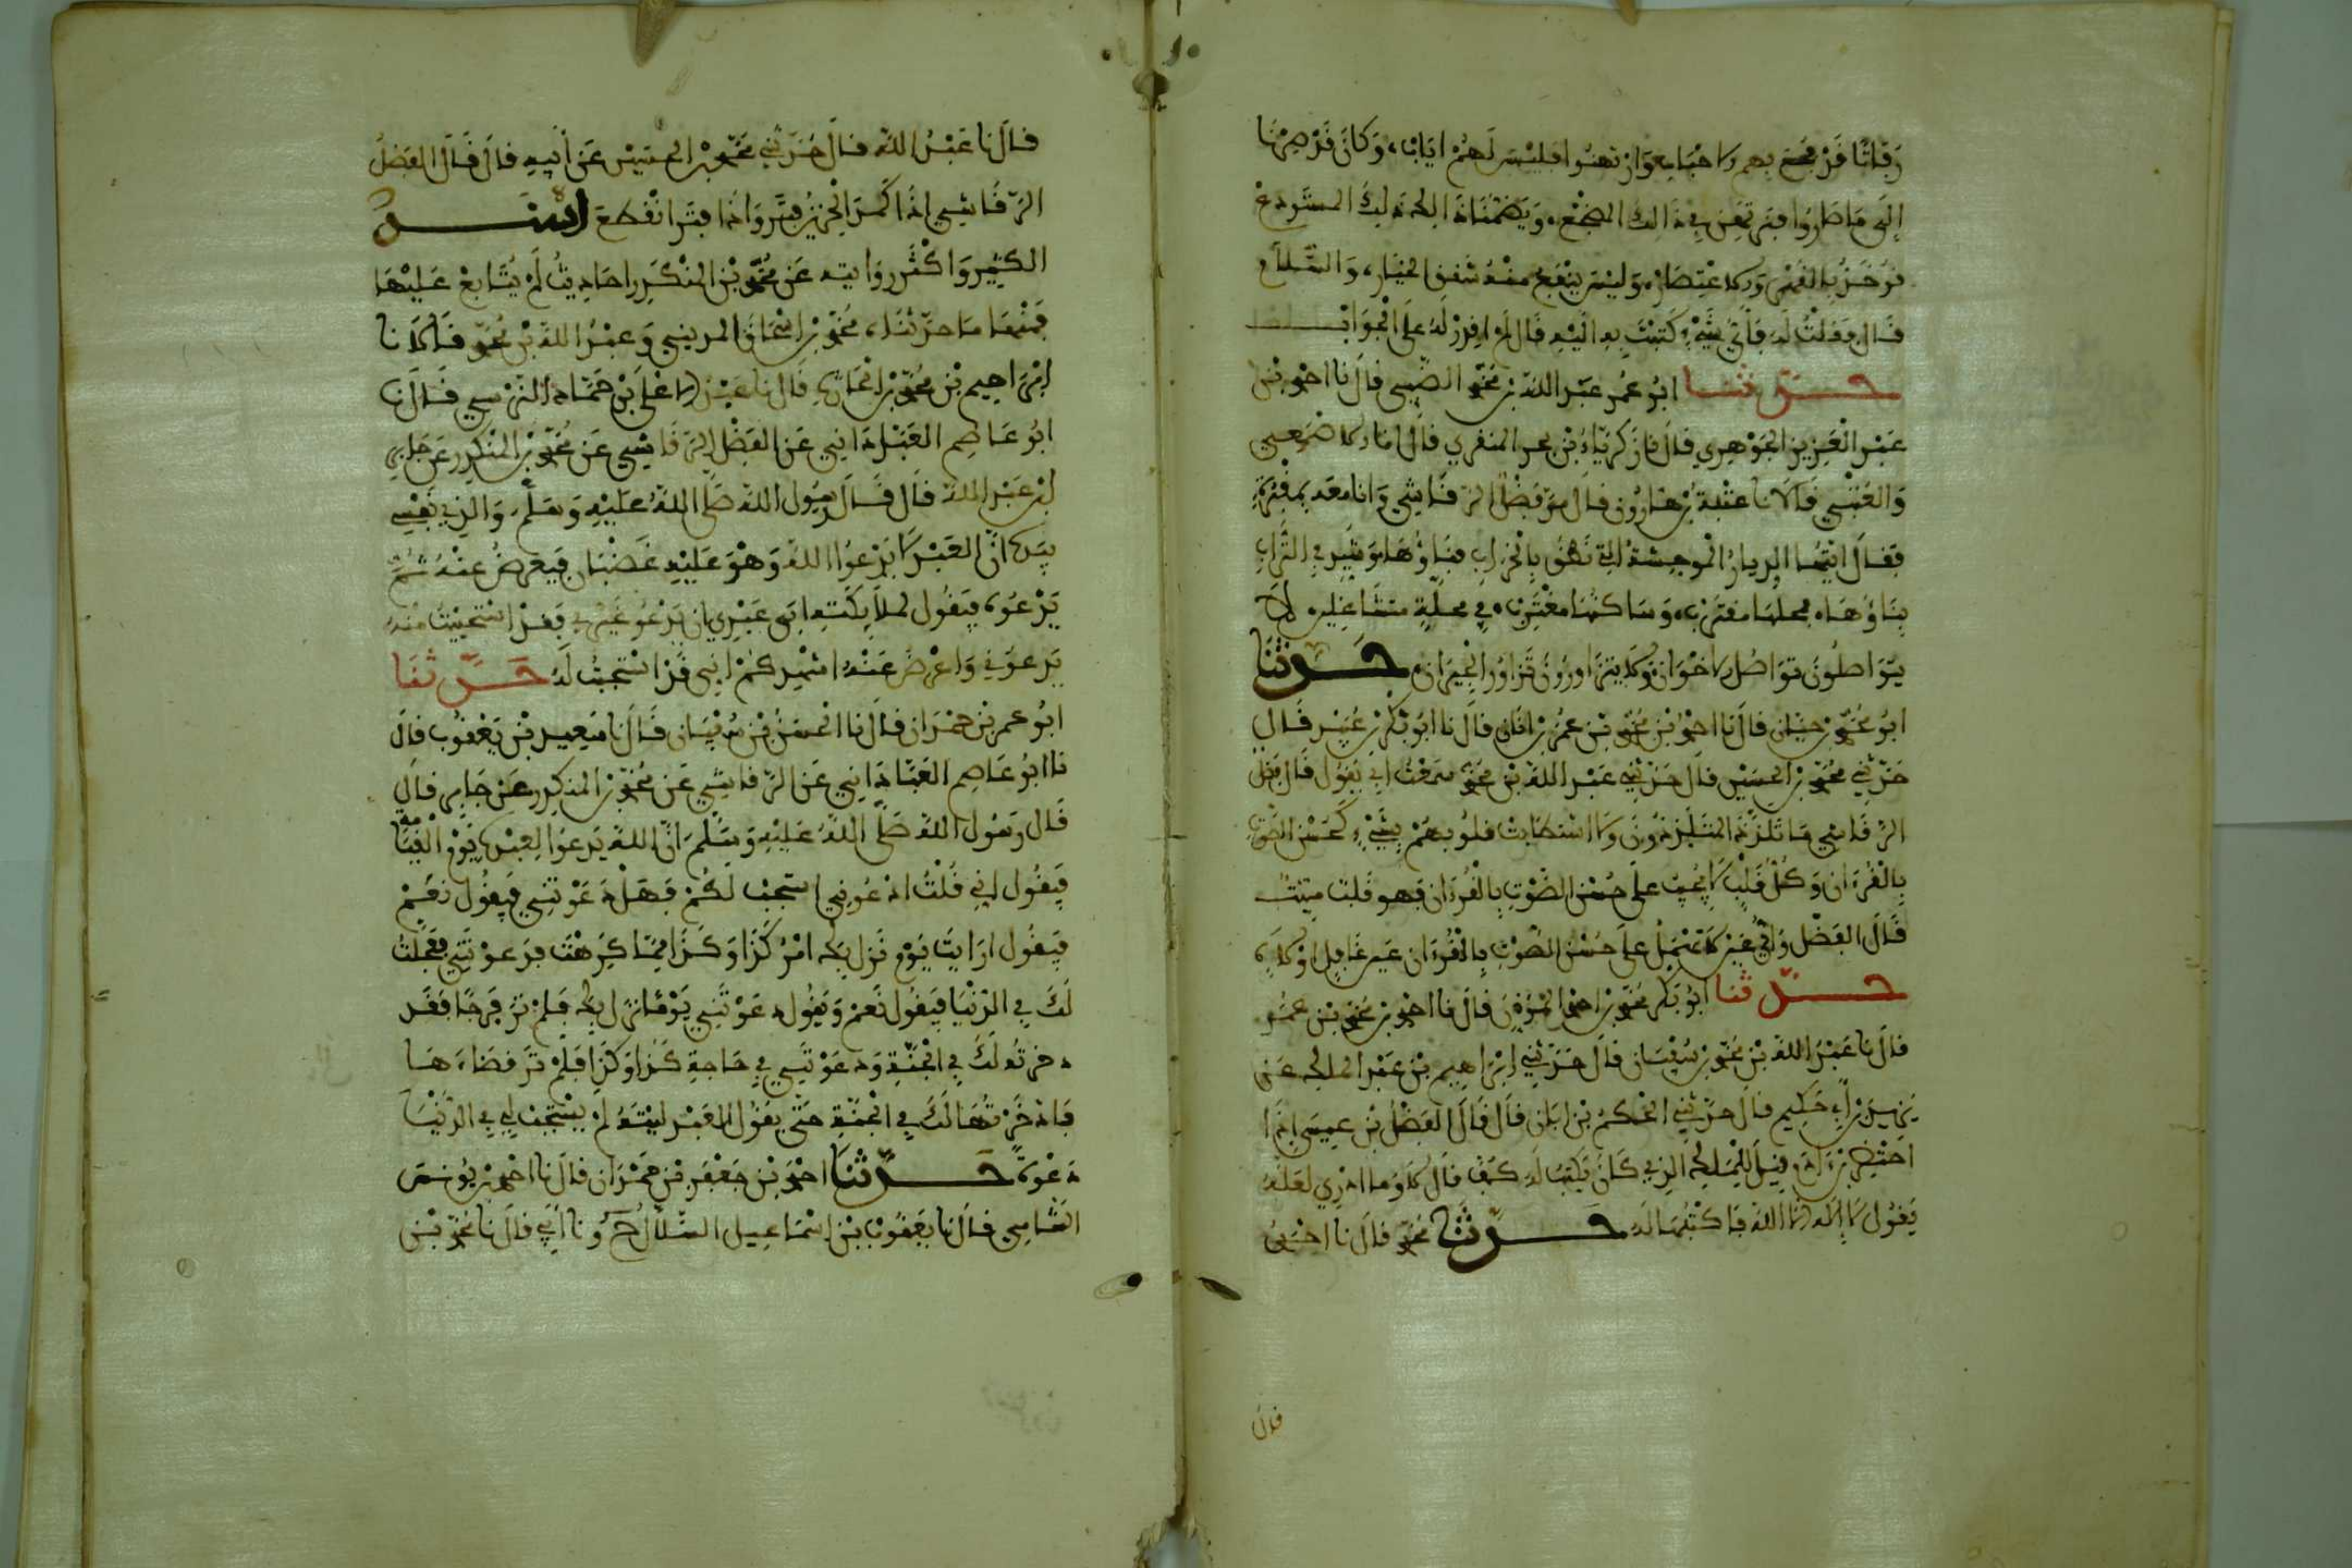 رفاتا قد فجع بهم الاحباب وارتهنوا فليس لهم اياب، وكان قد صرنا
الى ما صاروا فنرتهن في ذالك المضجع، ويضمنا ذالكم ذلك المستودع
نوخذ بالقهر والاعتصار، وليس ينفع منه شفق الحذار، والسلام
قال وقلت له فاي شيء كتبت به اليه قال لم اقدر له على الجواب
حدثنا ابو عمر عبد الله بن محمد الضبي قال نا احمد بن
عبد العزيز الجوهري قال نا زكرياء بن يحي المنقري قال نا الاصمعي
والعتبي قالا نا عتبة بن هارون قال مر فضل الرقاشي وانا معه بمقبرة
فقال ايتها الديار الموحشة التي نطق بالخراب فناؤها وشيد في التراب
بناؤها، فمحلها مقترب، وساكنها مغترب، في محلة متشاغلين لا
يتواصلون تواصل الاخوان ولا يتزاورون تزاور الجيران، حدثنا
ابو محمد بن حيان قال نا احمد بن محمد بن عمر بن ابان قال نا ابو بكر بن عبيد قال
حدثني محمد بن الحسين قال حدثني عبد الله بن محمد سمعت ابي يقول قال فضل
الرقاشي ما تلذذ المتلذذون ولا استطابت قلوبهم بشيء كحسن الصوت
بالقرءان وكل قلب لا يجب على حسن الصوت بالقرءان فهو قلب ميت
قال الفضل واي عين لا تهمل على حسن الصوت بالقرءان غير غافل او لاه
حدثنا ابو بكر محمد بن احمد المؤذن قال نا احمد بن محمد بن عمر
قال نا عبد الله بن محمد بن سفيان قال حدثني ابراهيم بن عبد الملك عن
يزيد بن ابي حكيم قال حدثني الحكم بن ابان قال قال الفضل بن عيسى اذا
احتضر ابن ءادم قيل للملك الذي كان يكتب له كف قال لا وما ادري لعله
يقول لا اله الا الله فاكتبها له حدثنا محمد قال نا احمد
قال
قال نا عبد الله قال حدثني محمد بن الحسين عن ابيه قال قال الفضل
الرقاشي اذا كمد الحزن فتر واذا فتر انقطع اسند
الكثير واكثر روايته عن محمد بن المنكدر احاديث لم يتابع عليها
فمنها ما حدثناه محمد بن اسحاق المديني وعبد الله بن محمد قالا نا
ابراهيم بن محمد بن الحارث قال نا عبد الاعلى بن حماد النرسي قال نا
ابو عاصم العباداني عن الفضل الرقاشي عن محمد بن المنكدر عن جابر
بن عبد الله قال قال رسول الله صلى الله عليه وسلم، والذي نفسي
بيده ان العبد لا يدعوا الله وهو عليه غضبان فيعرض عنه ثم
يدعوه فيقول لملايكته ابى عبدي ان يدعو غيري فقد استحييت منه
يدعوني واعرض عنه اشهدكم اني قد استجبت له حدثنا
ابو عمر بن حمدان قال نا الحسن بن سفيان قال نا سعيد بن يعقوب قال
نا ابو عاصم العباداني عن الرقاشي عن محمد بن المنكدر عن جابر قال
قال رسول الله صلى الله عليه وسلم، ان الله يدعوا لعبده يوم القيامة
فيقول اني قلت ادعوني استجب لكم فهل دعوتني فيقول نعم
فيقول ارايت يوم نزل بك امر كذا وكذا مما كرهت فدعوتني فعجلت
لك في الدنيا فيقول نعم ويقول دعوتني يوما نزل بك فلم تر فرجا فقد
دخرته لك في الجنة ودعوتني في حاجة كذا وكذا فلم تر قضاءها
فادخرتها لك في الجنة حتى يقول العبد ليته لم يستجب لي في الدنيا
دعوة حدثنا احمد بن جعفر بن حمدان قال نا احمد بن يونس
الشامي قال نا يعقوب بن اسماعيل السلال ح ونا ابي قال نا محمد بن